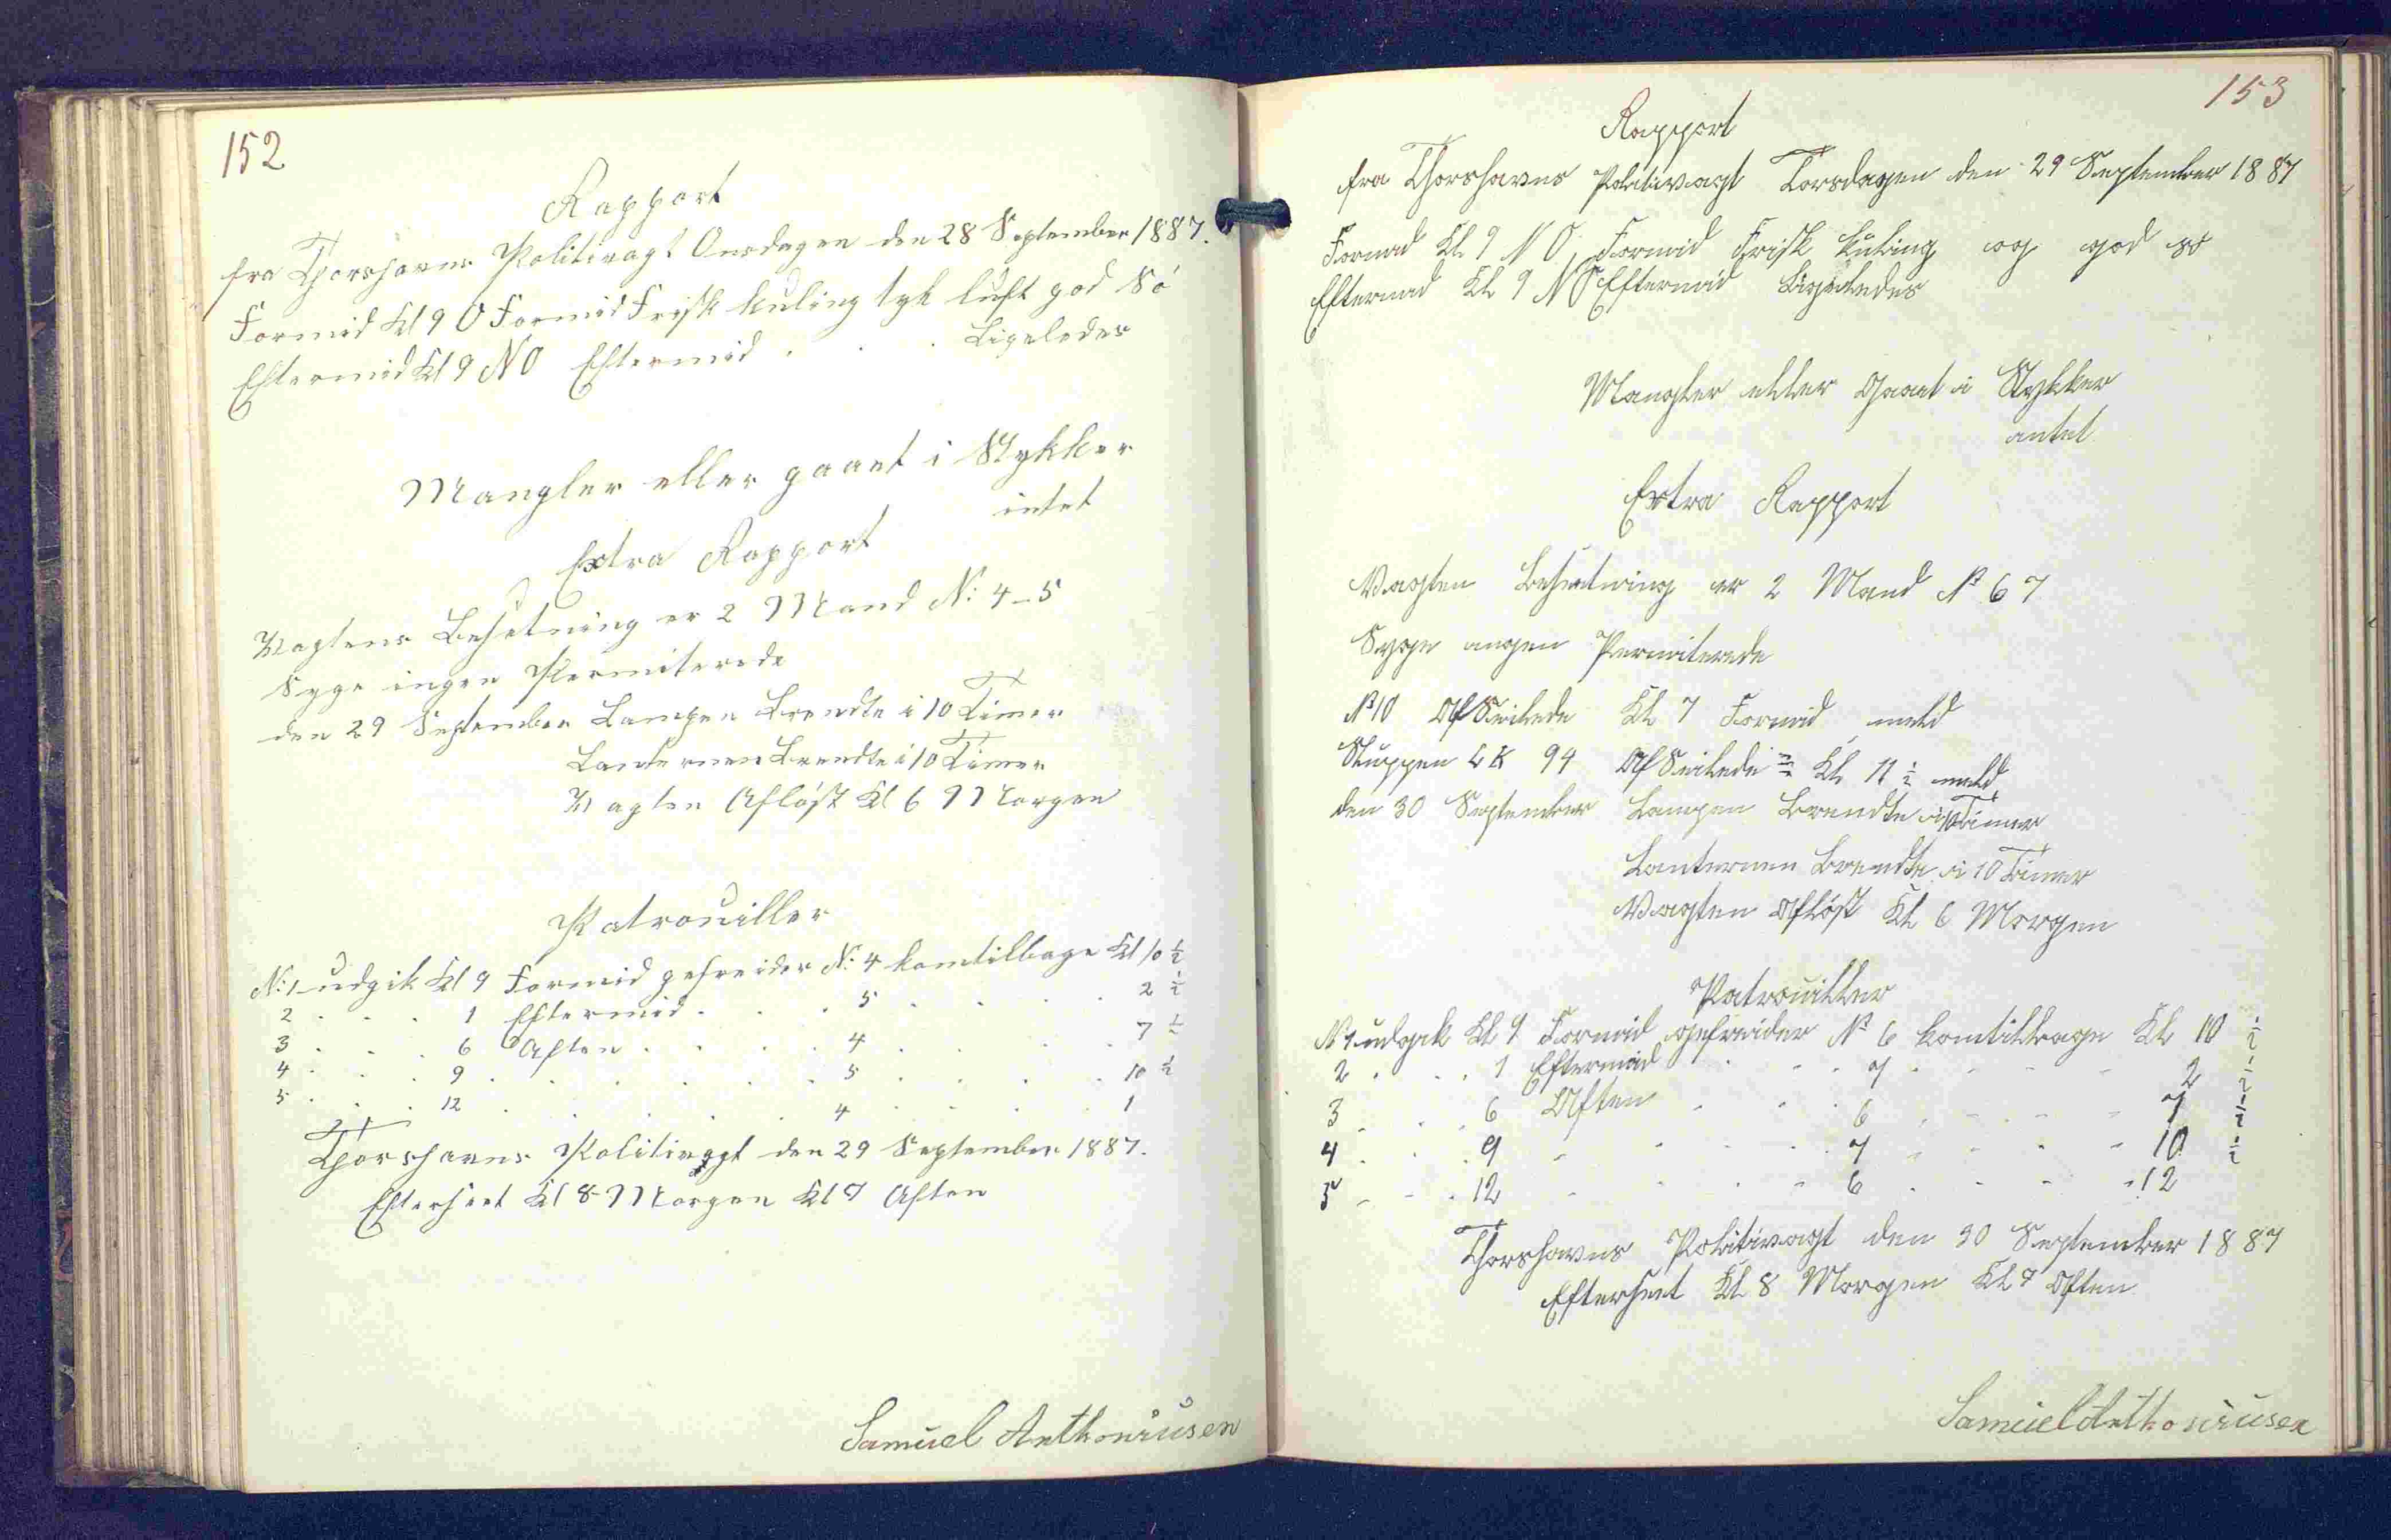 152
Rapport
fra Thorshavns Politivagt Onsdagen den 28 September 1887.
Formid Kl 9 O Formid Frisk kuling tyk luft god Sö
Eftermid Kl 9 NO Eftermid . . . Ligeledes
Mangler eller gaaet i Stykker
intet
Extra Rapport
Vagtens Besetning er 2 Mand N: 4-5
Syge ingen Permiterede
den 29 September Lampen Brendte i 10 Timer
Lanternen Brendte i 10 Timer
Vagten Aflöst Kl 6 Morgen
Patrouiller
N: 1 udgik Kl 9 Formid gefreider N: 4 kom tilbage Kl 10 ½
2 . . . 1 Eftermid . . . 5 . . . . 2 ½
3 . . . 6 Aften . . . . 4 . . . . 7 ½
4 . . . 9 . . . . . 5 . . . . 10 ½
5 . . . 12 . . . . . 4 . . . . 1
Thorshavns Politivagt den 29 September 1887.
Efterseet Kl 8 Morgen Kl 7 Aften
Samuel Anthoniusen
153
Rapport
fra Thorshavns Politivagt Torsdagen den 29 September 1887
Formid Kl 9 NO Formid Frisk kuling og god sö
Eftermid Kl 9 NO Eftermid Ligeledes
Mangler eller Gaaet i Stykker
intet
Extra Rapport
Vagten Besetning er 2 Mand No 6 7
Syge ingen Permiterede
No 10 Af Seilede Kl 7 Formid meld
Sluppen LK 94 Af Seilede Kl 11 ½ meld
den 30 September Lampen Brendte i 10 Timer
Lanternen Brendte i 10 Timer
Vagten Aflöst Kl 6 Morgen
Patrouiller
No 1 udgik Kl 9 Formid gefreider No 6 kom tilbage Kl 10 ½
2 . . . 1 Eftermid . . . 7 . . . - 2 ½
3 . . . 6 Aften . . . 6 . . . - 7 ½
4 . . . 9 . . . . 7 . . . - 10 ½
5 - - . 12 - . . - 6 . . - - 12
Thorshavns Politivagt den 30 September 1887
Efterseet Kl 8 Morgen Kl 7 Aften
Samuel Anthoniusen